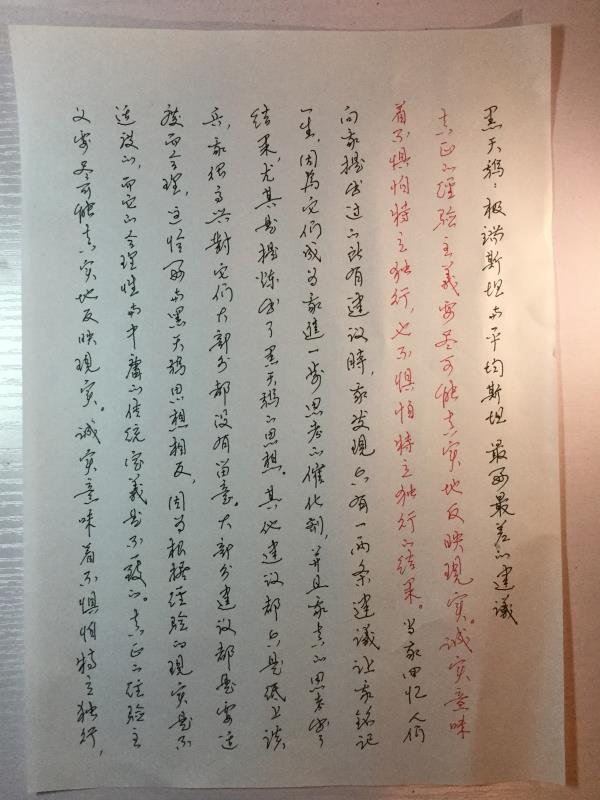 黑天鹅：极端斯坦与平均斯坦 最好最差的建議
真正的經验主義要尽可能真实地反映現实。誠实意味
着不惧怕特立独行，也不惧怕特立独行的结果。当我回忆人们
向我提出过的所有建议時，我发現只有一两条建議让我銘記
一生，因為它们成为我進一步思考的催化剂，并且我真的思考出了
结果，尤其是提炼出了黑天鹅的思想。其他建议都只是纸上谈
兵，我很高兴對它们大部分都没有留意。大部分建议都是要适
度而合理，这恰好与黑天鹅思想相反，因为根据经验的现实是不
适度的，而它的合理性与中庸的传统定義是不一致的。真正的经验主
义要尽可能真实地反映現实。诚实意味着不惧怕特立独行，